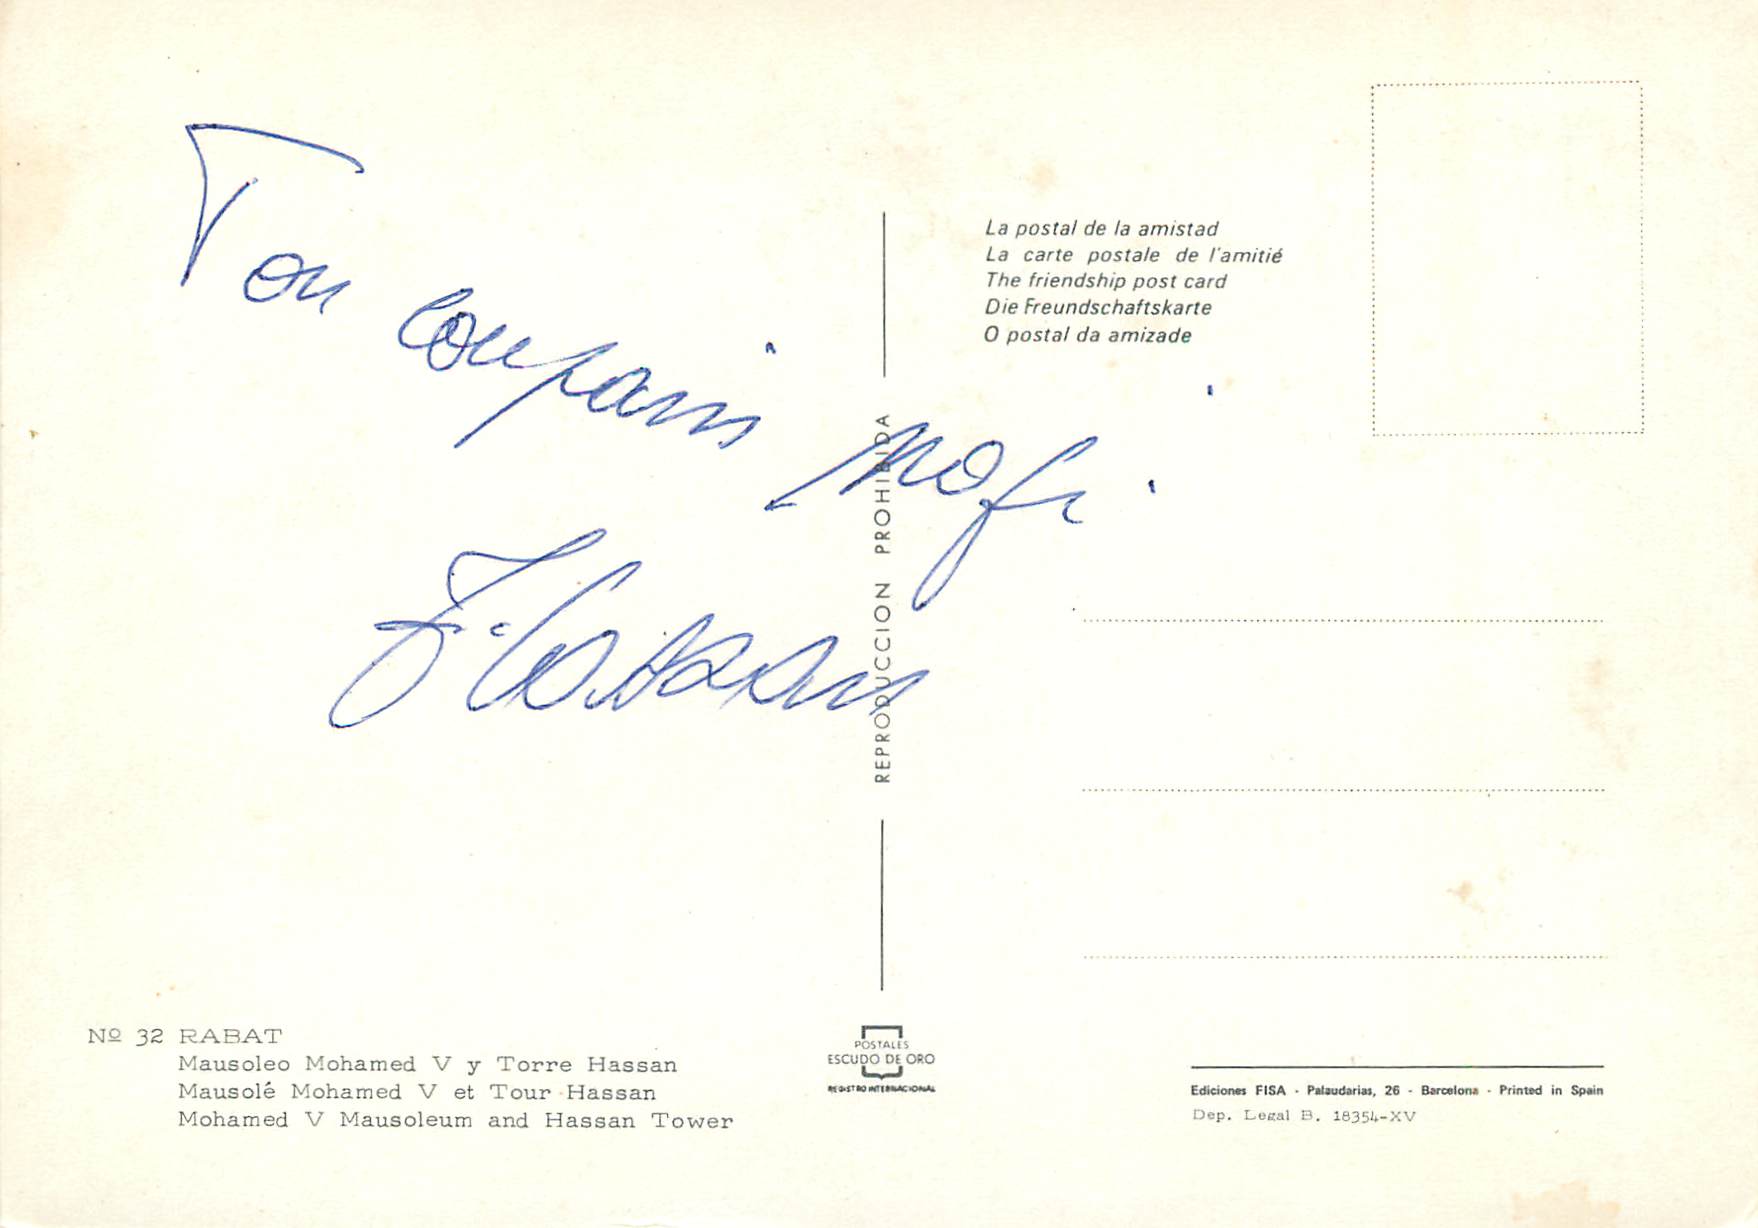 Ton compain
La postal de la amistad
La carte postale de l'amitié
The friendship post card
Die Freundschaftskarte
O postal da amizade
REPRODUCCION PROHIBIDA
Nº 32 RABAT
Mausoleo Mohamed V y Torre Hassan
Mausolé Mohamed V et Tour Hassan
Mohamed V Mausoleum and Hassan Tower
POSTALES
ESCUDO DE ORO
REGISTRO INTERNACIONAL
Ediciones FISA - Palaudarias, 26 - Barcelona - Printed in Spain
Dep. Legal B. 18354-XV